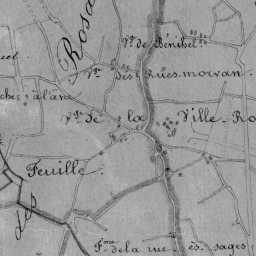 Rosa
V.ge de Bénihel
V.ge des Rues morvan
V.ge de la Ville-Ro
Feuille.
F.me de la rue ès sages